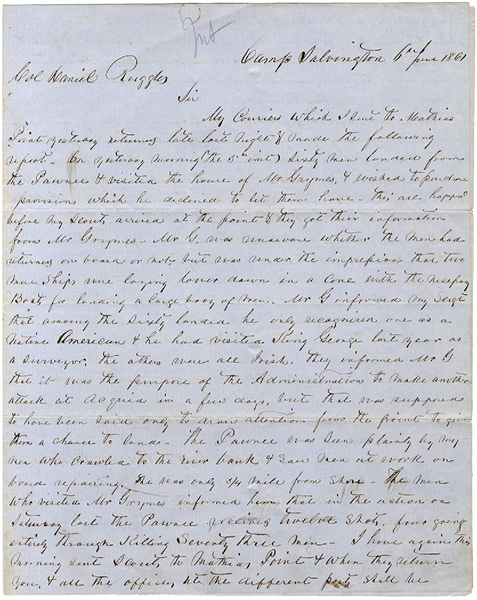 Camp Salvington 6th June 1861
Col Daniel Ruggles
Sir
My Couriers which I sent to Mathias
Point yesterday returned late last night & made the following
report - On yesterday morning (the 5th inst) Sixty men landed from
the Pawnee & visited the house of Mr Grymes, & wished to purchase
provisions which he declined to let them have - this all happd
before my Scouts arrived at the point & they got their information
from Mr Grymes - Mr G. was unaware whether the men had
returned on board or not, but was under the impression that two
more Ships were laying lower down in a Cove with the necessary
Boats for landing a large body of men. Mr G informed my Sergt
that among the Sixty landed, he only recognised one as a
Native American & he had visited King George last year as
a Surveyor, the others were all Irish. they informed Mr G
that it was the purpose of the Administration to make another
attack at Acquia in a few days, but that was supposed
to have been said only to draw attention from the point to give
them a chance to land - The Pawnee was seen plainly by my
men who crawled to the river bank & saw men at work on
board repairing. She was only 3/4 mile from shore - The men
who visited Mr Grymes informed him that in the action on
Saturday last the Pawnee received twelve Shots, four going
entirely through Killing Seventy three men - I have again this
morning sent Scouts to Mathias Point & when they return
You, & all the officers at the different posts shall be